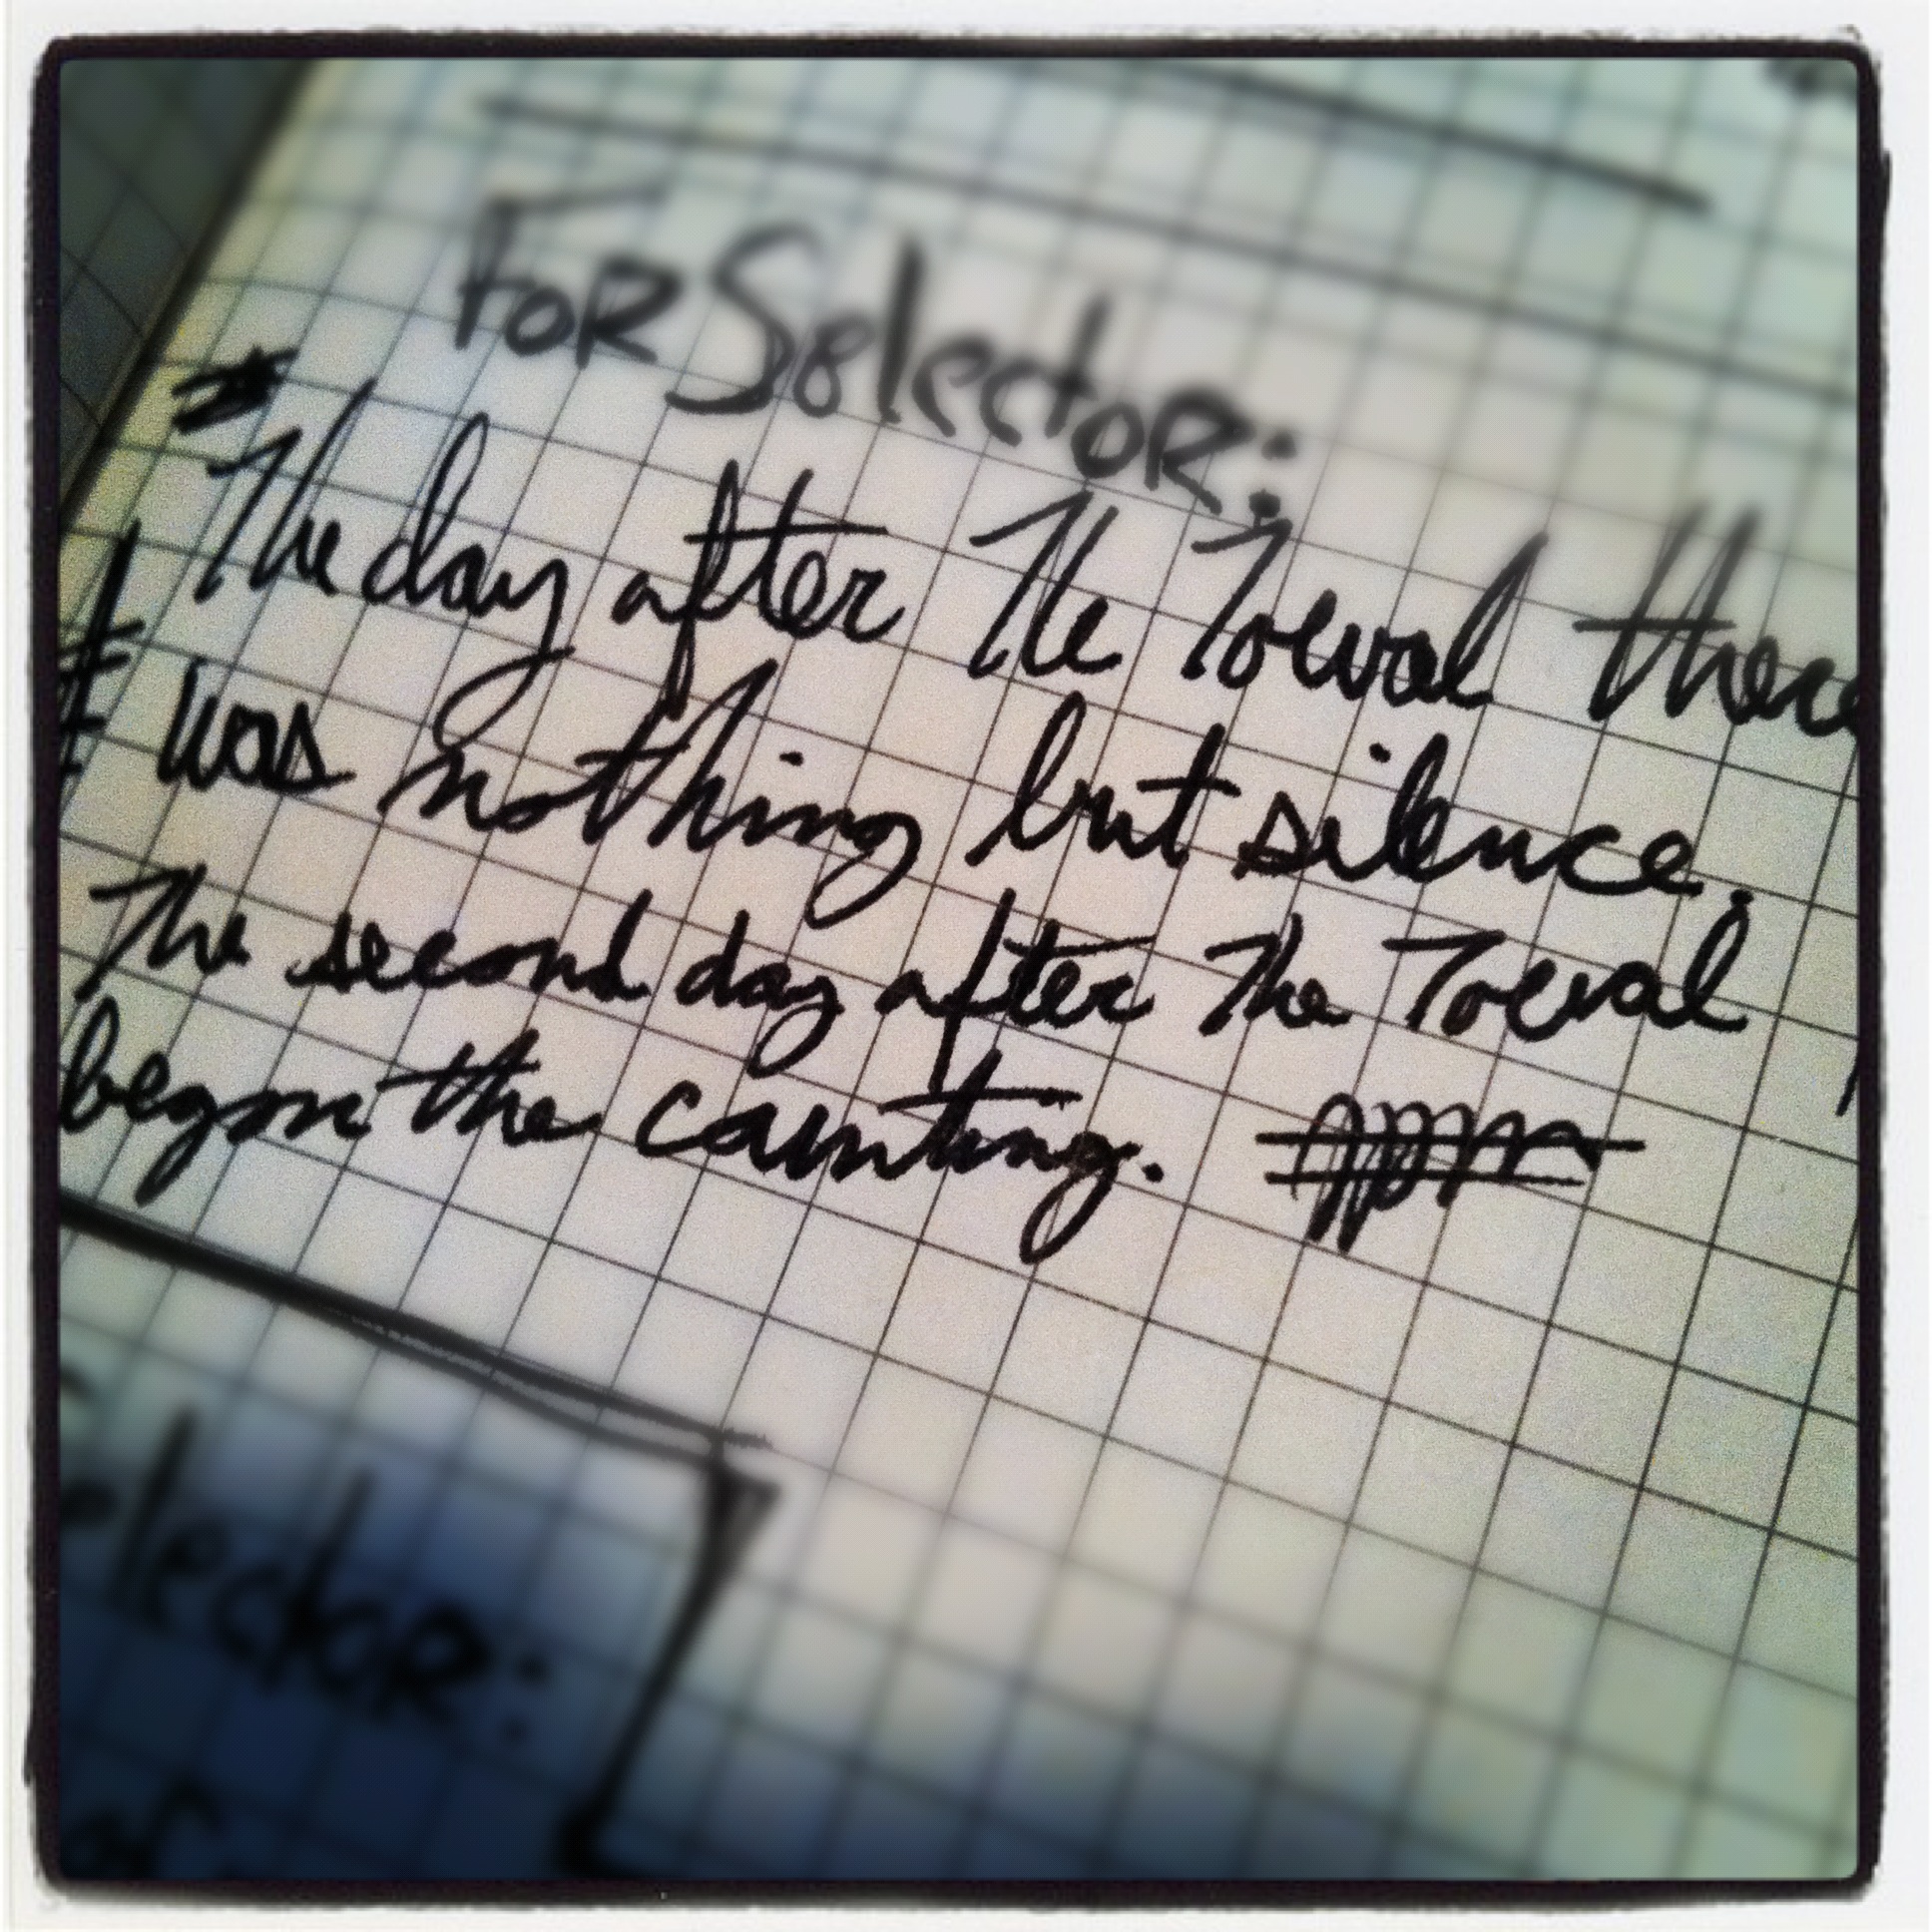 FOR SelectoR:
* The day after The Toewal there
was nothing but silence.
The second day after The Toewal
began the counting.
lectoR: